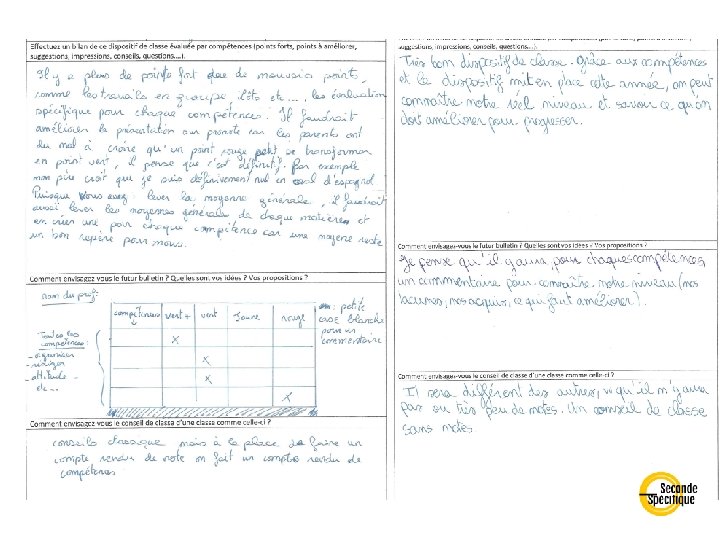 Effectuez un bilan de ce dispositif de classe évaluée par compétences (points forts, points à améliorer,
suggestions, impressions, conseils, questions....).
Il y a plus de points fort que de mauvais points,
comme les travails en groupe îlots etc..., les évaluation
spécifique pour chaque compétences. Il faudrait
améliorer la présentation sur pronote car les parents ont
du mal à croire qu'un point rouge peut se transformer
en point vert, il pense que c'est définitif. Par exemple
mon père croit que je suis définivement nul en oral d'espagnol
Puisque vous avez lever la moyenne générale, il faudrait
aussi lever les moyennes générale de chaque matières et
en créer une pour chaque compétence car une moyene reste
un bon repère pour nous.
Comment envisagez vous le futur bulletin ? Quelles sont vos idées ? Vos propositions ?
nom du prof:
compétences vert + vert Jaune rouge
petite
case blanche
pour un
commentaire
Toutes les
compétences:
- organiser
- rédiger
- attitude
- etc...
X
X
X
X
Comment envisagez vous le conseil de classe d'une classe comme celle-ci ?
conseils classique mais à la place de faire un
compte rendu de note on fait un comptes rendu de
compétences
suggestions, impressions, conseils, questions....).
Très bon dispositif de classe. Grâce aux compétences
et le dispositif mit en place cette année, on peut
connaître notre réel niveau et savoir ce qu'on
dois améliorer pour progresser.
Comment envisagez-vous le futur bulletin ? Quelles sont vos idées ? Vos propositions ?
Je pense qu'il y aura, pour chaques compétences,
un commentaire pour connaître notre niveau (nos
lacunes, nos acquis, ce qu'il faut améliorer).
Comment envisagez-vous le conseil de classe d'une classe comme celle-ci ?
Il sera différent des autres, vu qu'il n'y aura
pas ou très peu de notes. Un conseil de classe
sans notes.
Seconde
Spécifique